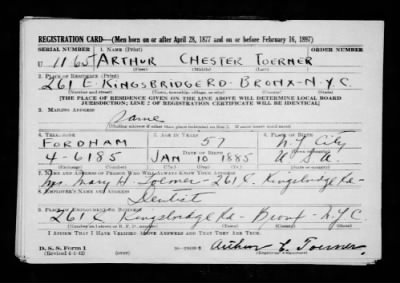 REGISTRATION CARD—(Men born on or after April 28, 1877 and on or before February 16, 1897)
SERIAL NUMBER 1. NAME (Print) ORDER NUMBER
U 1165 ARTHUR CHESTER TOERNER
(First) (Middle) (Last)
2. PLACE OF RESIDENCE (Print)
261 E. KINGSBRIDGE RD. BRONX-N.Y.C.
(Number and street) (Town, township, village, or city) (County) (State)
[THE PLACE OF RESIDENCE GIVEN ON THE LINE ABOVE WILL DETERMINE LOCAL BOARD
JURISDICTION; LINE 2 OF REGISTRATION CERTIFICATE WILL BE IDENTICAL]
3. MAILING ADDRESS
Same
(Mailing address if other than place indicated on line 2. If same insert word same)
4. TELEPHONE 5. AGE IN YEARS 6. PLACE OF BIRTH
FORDHAM 57 N.Y. City
DATE OF BIRTH
4-6185 JAN 10 1885 U S A.
7. NAME AND ADDRESS OF PERSON WHO WILL ALWAYS KNOW YOUR ADDRESS
Mrs. Mary H. Toerner-261 E. Kingsbridge Rd-
8. EMPLOYER'S NAME AND ADDRESS
Dentist
9. PLACE OF EMPLOYMENT OR BUSINESS
261 E Kingsbridge Rd- Bronx-N.Y.C.
(Number and street or R. F. D. number) (Town) (County) (State)
I AFFIRM THAT I HAVE VERIFIED ABOVE ANSWERS AND THAT THEY ARE TRUE.
D. S. S. Form 1
(Revised 4-1-42) Arthur C. Toerner
(Registrant's signature)